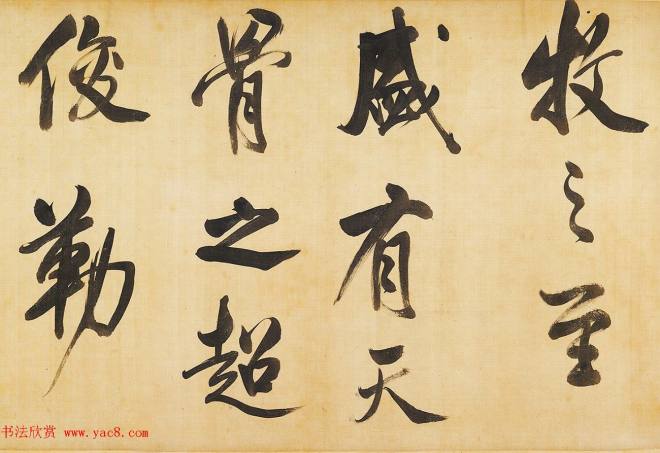 牧之至
盛有天
骨之超
俊勒
书法欣赏 www.yac8.com